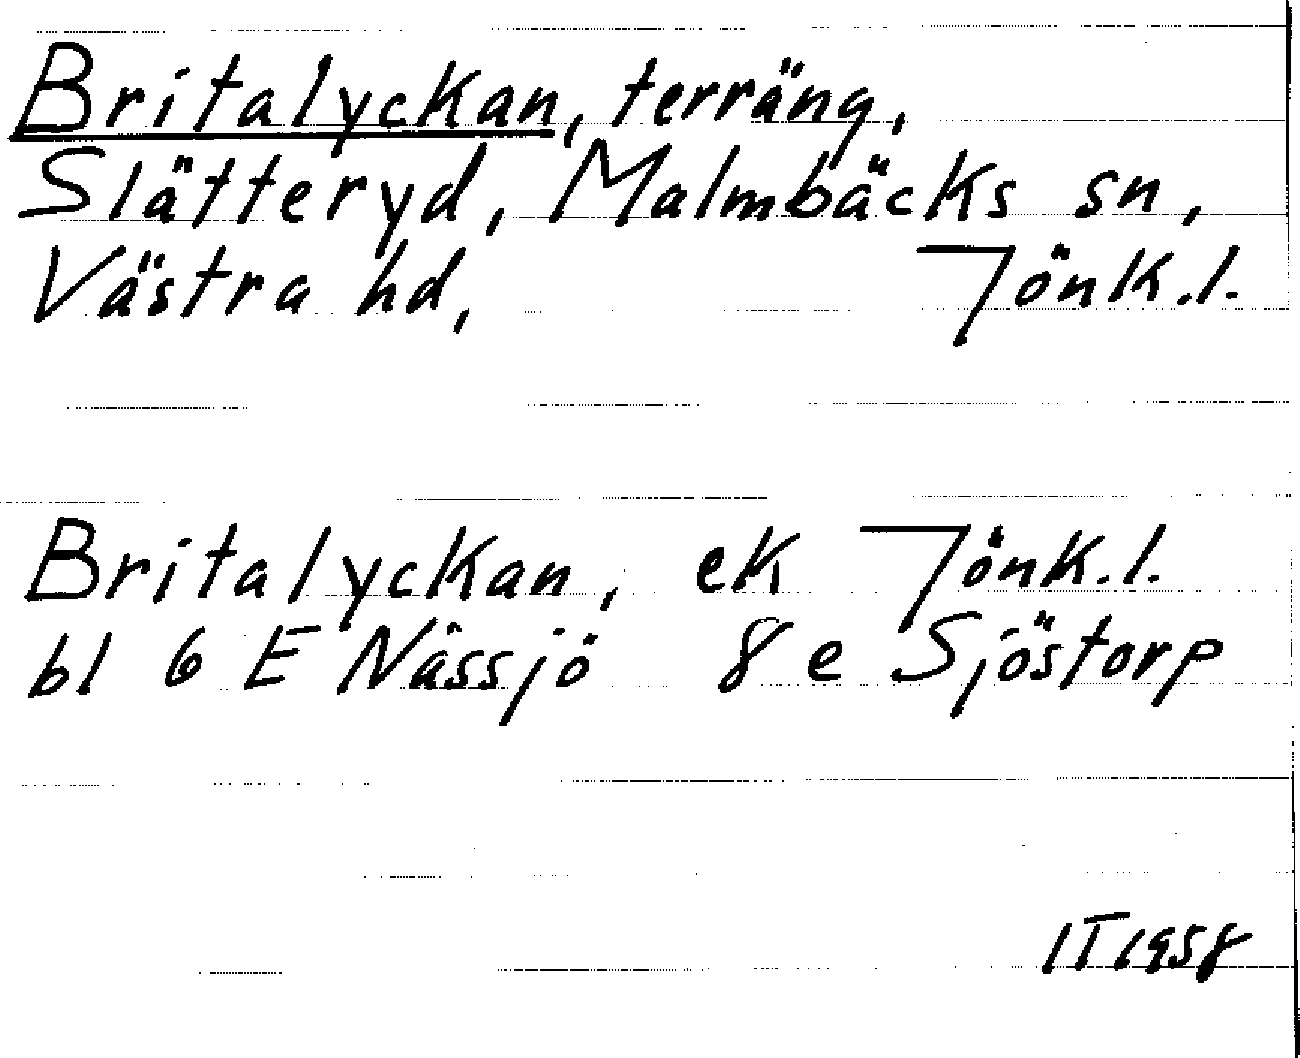 Britalyckan, terräng,
Slätteryd, Malmbäcks sn,
Västra hd, Jönk.l.
Britalyckan, ek Jönk.l.
bl 6 E Nässjö 8 e Sjöstorp
IT 1958